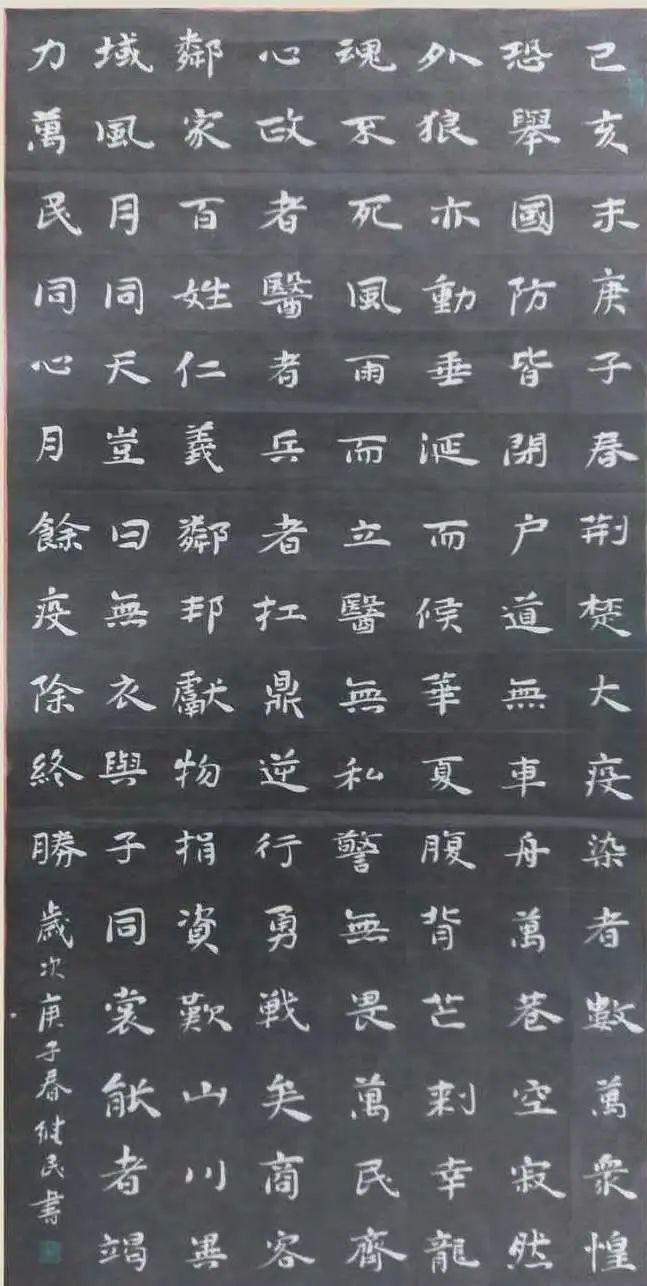 己亥末庚子春荆楚大疫染者數萬眾惶
恐舉國防皆閉户道無車舟萬巷空寂然
外狼亦動垂涎而候華夏腹背芒刺幸龍
魂不死風雨而立醫無私警無畏萬民齊
心政者醫者兵者扛鼎逆行勇戰矣商客
鄰家百姓仁義鄰邦獻物捐資歎山川異
域風月同天豈曰無衣與子同裳能者竭
力萬民同心月餘疫除終勝
歲次庚子春健民書